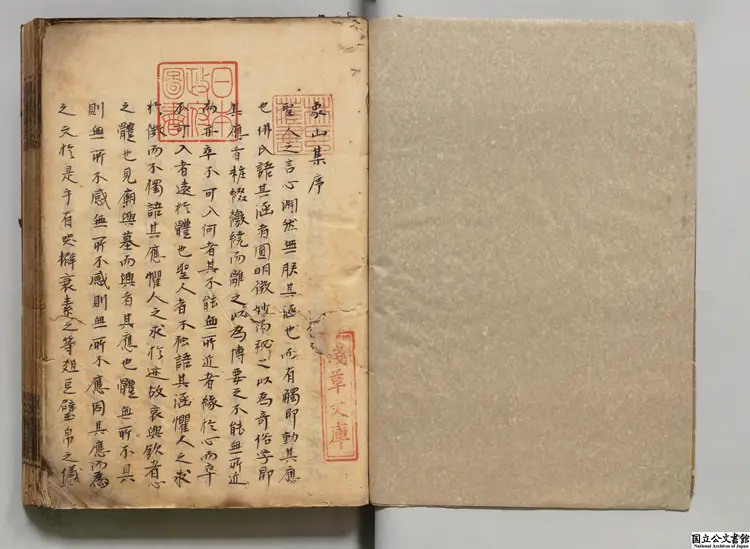 象山集序
聖人之言心淵然無朕其涵也而有觸即動其應
也佛氏語其涵者圓明微妙而秘之以為奇俗學即
其應者粧綴繳繞而離之以為博要之不能無所近
而亦卒不可入何者其不能無所近者緣於心而卒
不可入者遠於體也聖人者不独語其涵懼人之求
於微而不獨語其應懼人之求於迹故哀與欽者心
之體也見廟與墓而興者其應也體無所不具
則無所不感無所不感則無所不應因其應而為
之文於是乎有哭擗衰素之等俎豆璧帛之儀
日本
政府
圖書
淺草文庫
国立公文書館
National Archives of Japan